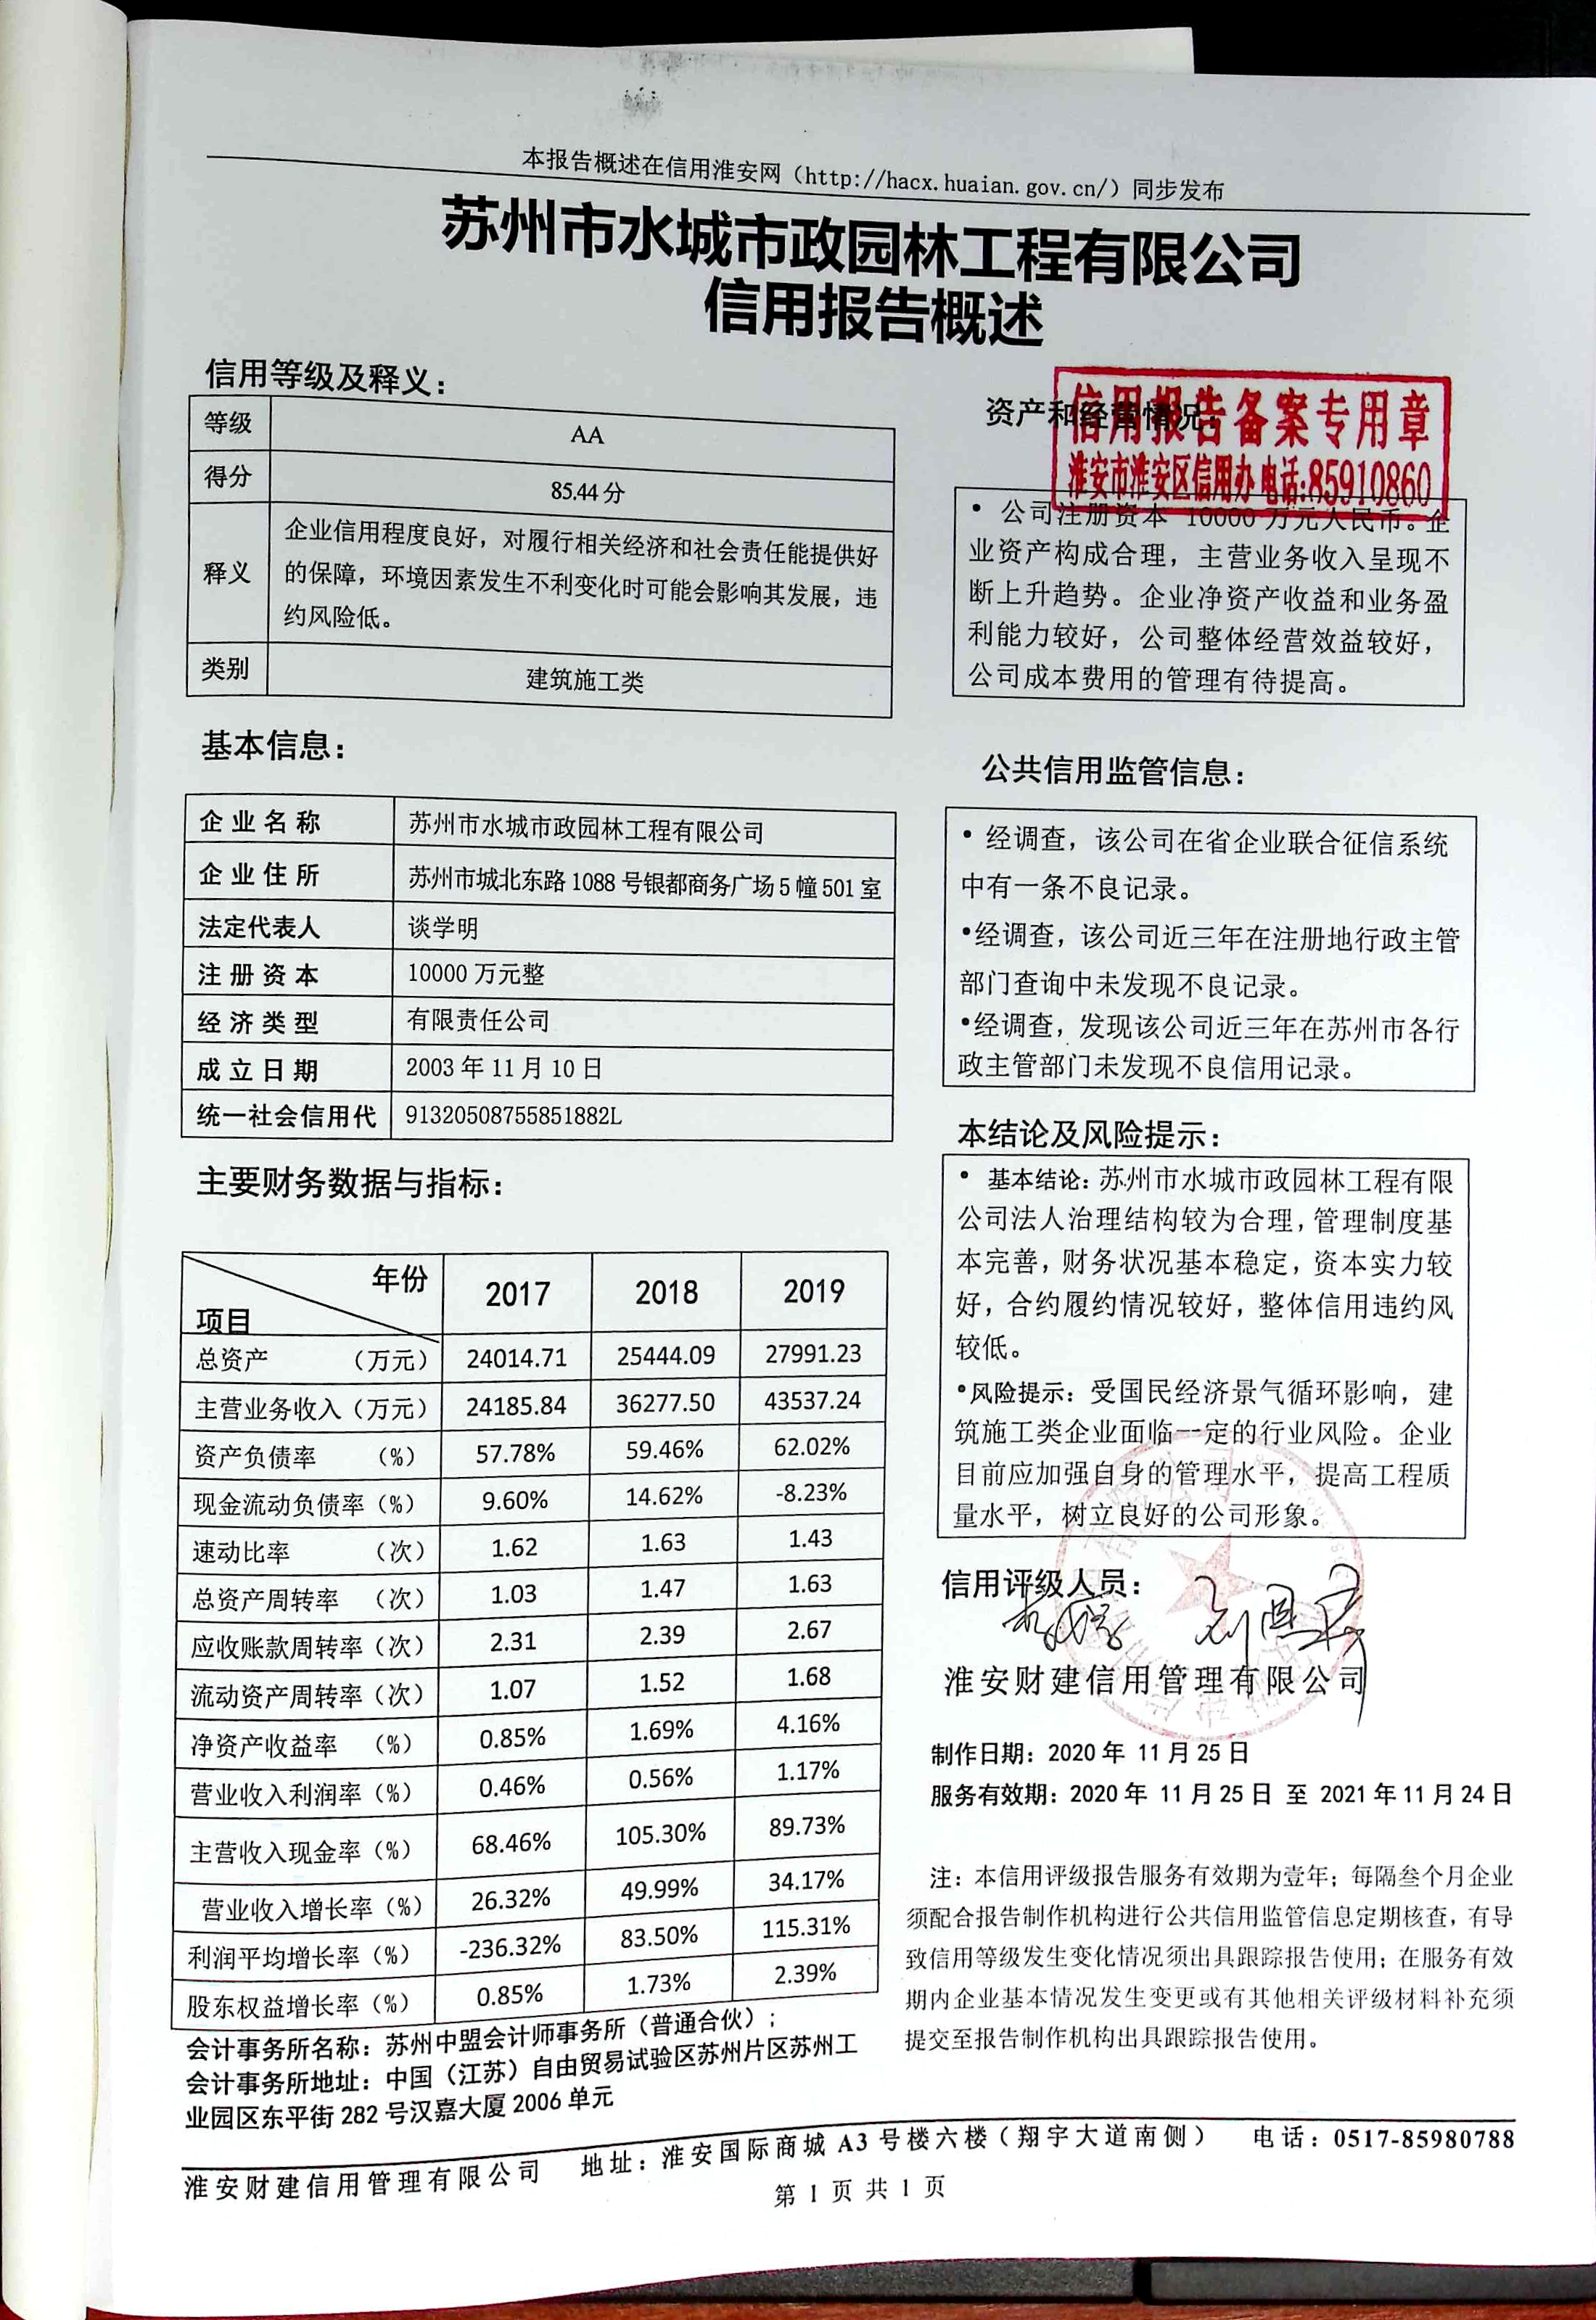 本报告概述在信用淮安网（http://hacx.huaian.gov.cn/）同步发布
苏州市水城市政园林工程有限公司
信用报告概述
信用等级及释义：
等级 AA
得分 85.44分
释义 企业信用程度良好，对履行相关经济和社会责任能提供好
的保障，环境因素发生不利变化时可能会影响其发展，违
约风险低。
类别 建筑施工类
基本信息：
企业名称 苏州市水城市政园林工程有限公司
企业住所 苏州市城北东路1088号银都商务广场5幢501室
法定代表人 谈学明
注册资本 10000万元整
经济类型 有限责任公司
成立日期 2003年11月10日
统一社会信用代 91320508755851882L
主要财务数据与指标：
年份
项目 2017 2018 2019
总资产 （万元） 24014.71 25444.09 27991.23
主营业务收入（万元） 24185.84 36277.50 43537.24
资产负债率 （%） 57.78% 59.46% 62.02%
现金流动负债率（%） 9.60% 14.62% -8.23%
速动比率 （次） 1.62 1.63 1.43
总资产周转率 （次） 1.03 1.47 1.63
应收账款周转率（次） 2.31 2.39 2.67
流动资产周转率（次） 1.07 1.52 1.68
净资产收益率 （%） 0.85% 1.69% 4.16%
营业收入利润率（%） 0.46% 0.56% 1.17%
主营收入现金率（%） 68.46% 105.30% 89.73%
营业收入增长率（%） 26.32% 49.99% 34.17%
利润平均增长率（%） -236.32% 83.50% 115.31%
股东权益增长率（%） 0.85% 1.73% 2.39%
会计事务所名称：苏州中盟会计师事务所（普通合伙）；
会计事务所地址：中国（江苏）自由贸易试验区苏州片区苏州工
业园区东平街282号汉嘉大厦2006单元
资产和经营情况：
信用报告备案专用章
淮安市淮安区信用办 电话:85910860
• 公司注册资本 10000 万元人民币。企
业资产构成合理，主营业务收入呈现不
断上升趋势。企业净资产收益和业务盈
利能力较好，公司整体经营效益较好，
公司成本费用的管理有待提高。
公共信用监管信息：
• 经调查，该公司在省企业联合征信系统
中有一条不良记录。
•经调查，该公司近三年在注册地行政主管
部门查询中未发现不良记录。
•经调查，发现该公司近三年在苏州市各行
政主管部门未发现不良信用记录。
本结论及风险提示：
• 基本结论：苏州市水城市政园林工程有限
公司法人治理结构较为合理，管理制度基
本完善，财务状况基本稳定，资本实力较
好，合约履约情况较好，整体信用违约风
较低。
•风险提示：受国民经济景气循环影响，建
筑施工类企业面临一定的行业风险。企业
目前应加强自身的管理水平，提高工程质
量水平，树立良好的公司形象。
信用评级人员：
淮安财建信用管理有限公司
制作日期：2020年 11月25日
服务有效期：2020年 11月25日 至 2021年11月24日
注：本信用评级报告服务有效期为壹年；每隔叁个月企业
须配合报告制作机构进行公共信用监管信息定期核查，有导
致信用等级发生变化情况须出具跟踪报告使用；在服务有效
期内企业基本情况发生变更或有其他相关评级材料补充须
提交至报告制作机构出具跟踪报告使用。
淮安财建信用管理有限公司 地址：淮安国际商城A3号楼六楼（翔宇大道南侧） 电话：0517-85980788
第 1 页 共 1 页